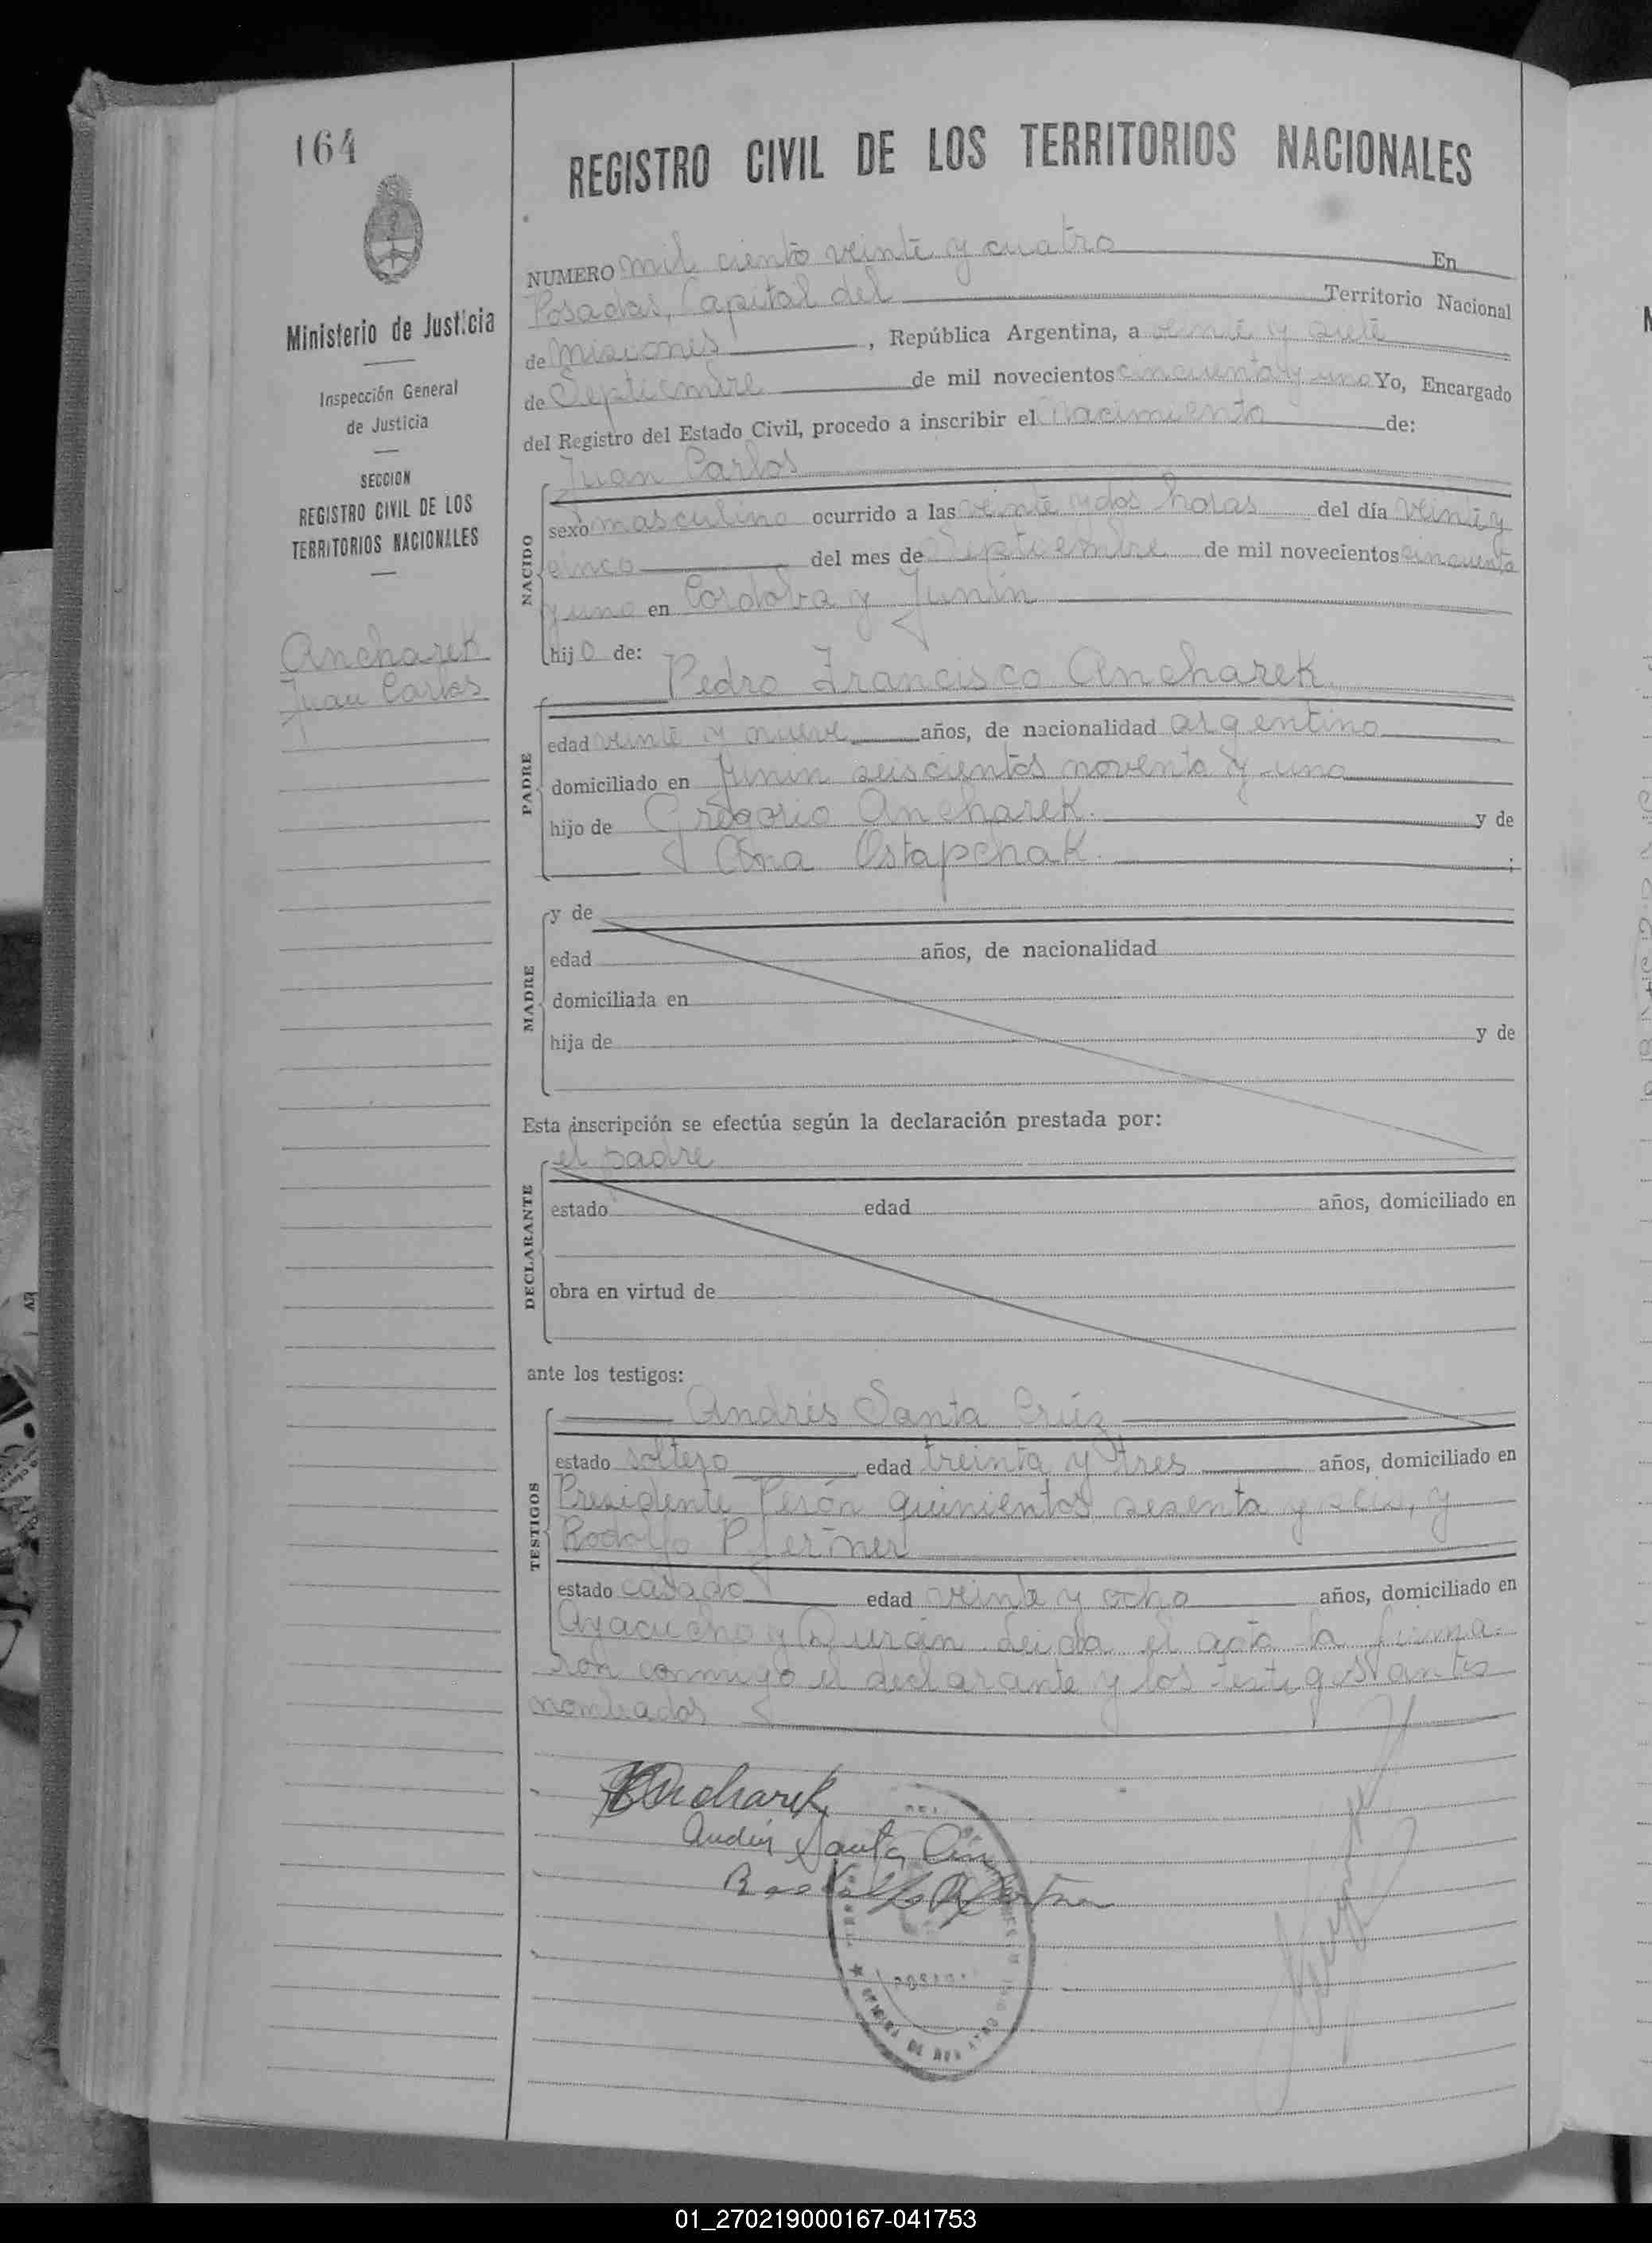 164
REGISTRO CIVIL DE LOS TERRITORIOS NACIONALES
Ministerio de Justicia
Inspección General
de Justicia
SECCION
REGISTRO CIVIL DE LOS
TERRITORIOS NACIONALES
Ancharek
Juan Carlos
NUMERO mil ciento veinte y cuatro En
Posadas, Capital del Territorio Nacional
de Misiones, República Argentina, a veinte y siete
de Septiembre de mil novecientos cincuenta y uno Yo, Encargado
del Registro del Estado Civil, procedo a inscribir el Nacimiento de:
Juan Carlos
NACIDO
sexo masculino ocurrido a las veinte y dos horas del día veinte y
cinco del mes de Septiembre de mil novecientos cincuenta
y uno en Cordoba y Junín
hijo de:
Pedro Francisco Ancharek.
PADRE
edad veinte y nueve años, de nacionalidad argentino
domiciliado en Junin seiscientos noventa y uno
hijo de Gregorio Ancharek. y de
Ana Ostapchak. ;
MADRE
y de
edad años, de nacionalidad
domiciliada en
hija de y de
Esta inscripción se efectúa según la declaración prestada por:
el padre
DECLARANTE
estado edad años, domiciliado en
obra en virtud de
ante los testigos:
Andrés Santa Crúz
TESTIGOS
estado soltero edad treinta y tres años, domiciliado en
Presidente Perón quinientos sesenta y seis, y
Rodolfo Pfertner
estado casado edad veinte y ocho años, domiciliado en
Ayacucho y Durán. Leida el acta la firma-
ron conmigo el declarante y los testigos antes
nombrados
Ancharek
Andrés Santa Cruz
Rodolfo Pfertner
OFICINA DE
01_270219000167-041753